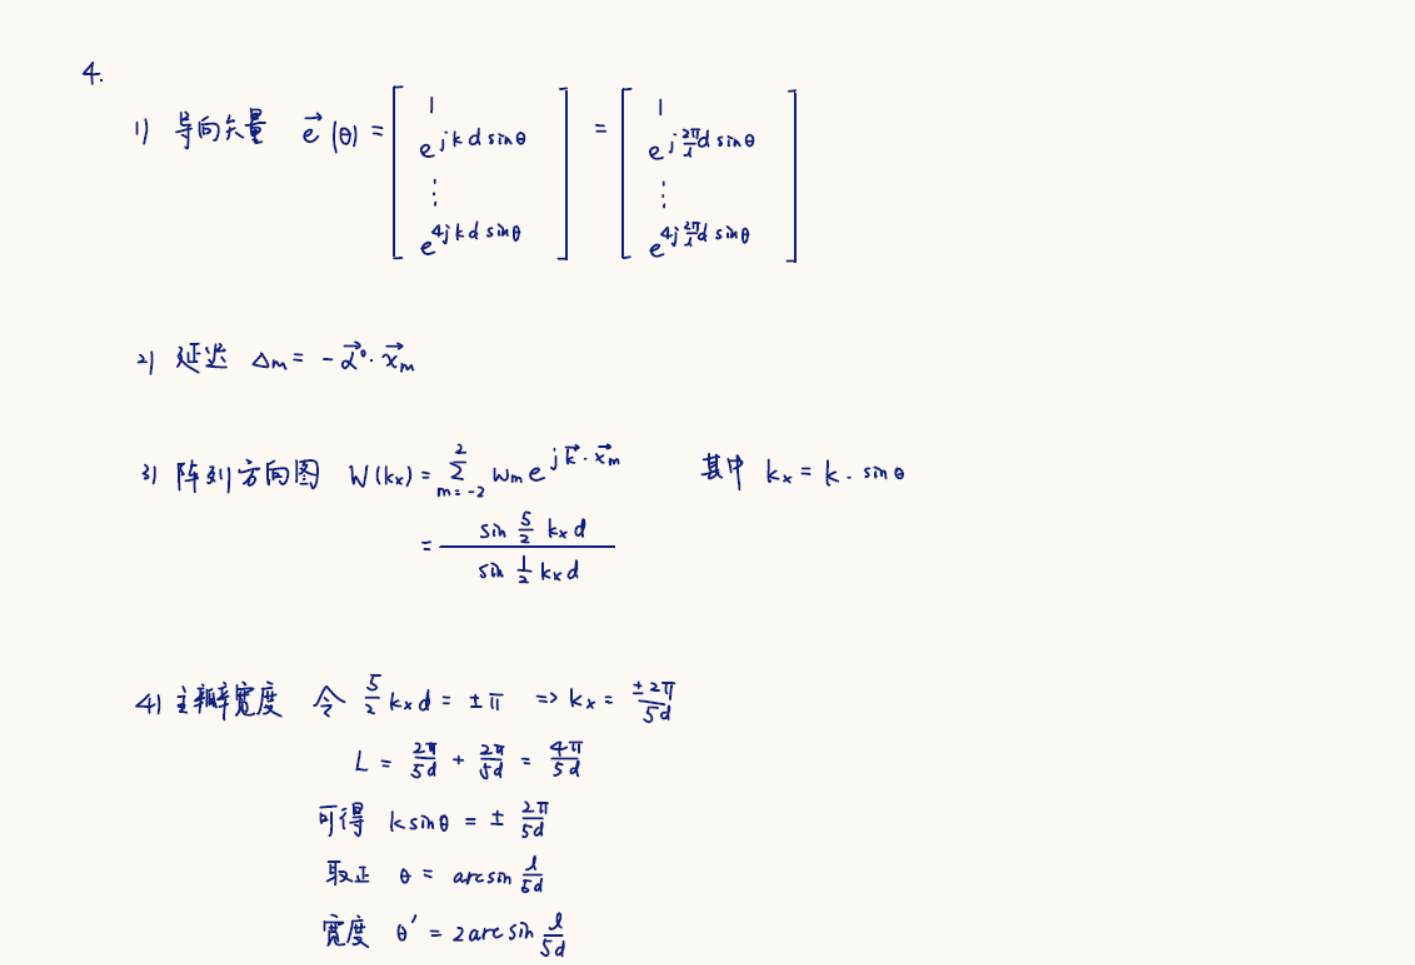 4.
1) 导向矢量 \vec{e}(θ) = [1, e^{jkd sinθ}, ⋮, e^{4jkd sinθ}] = [1, e^{j\frac{2π}{λ}d sinθ}, ⋮, e^{4j\frac{2π}{λ}d sinθ}]
2) 延迟 Δm = -\vec{α}°·\vec{x}_m
3) 阵列方向图 W(kx) = \sum_{m=-2}^{2} w_m e^{j\vec{k}·\vec{x}_m} 其中 kx = k·sinθ
= \frac{sin \frac{5}{2} kx d}{sin \frac{1}{2} kx d}
4) 主瓣宽度 令 \frac{5}{2} kx d = ±π => kx = \frac{±2π}{5d}
L = \frac{2π}{5d} + \frac{2π}{5d} = \frac{4π}{5d}
可得 k sinθ = ± \frac{2π}{5d}
取正 θ = arcsin \frac{λ}{5d}
宽度 θ' = 2arcsin \frac{λ}{5d}